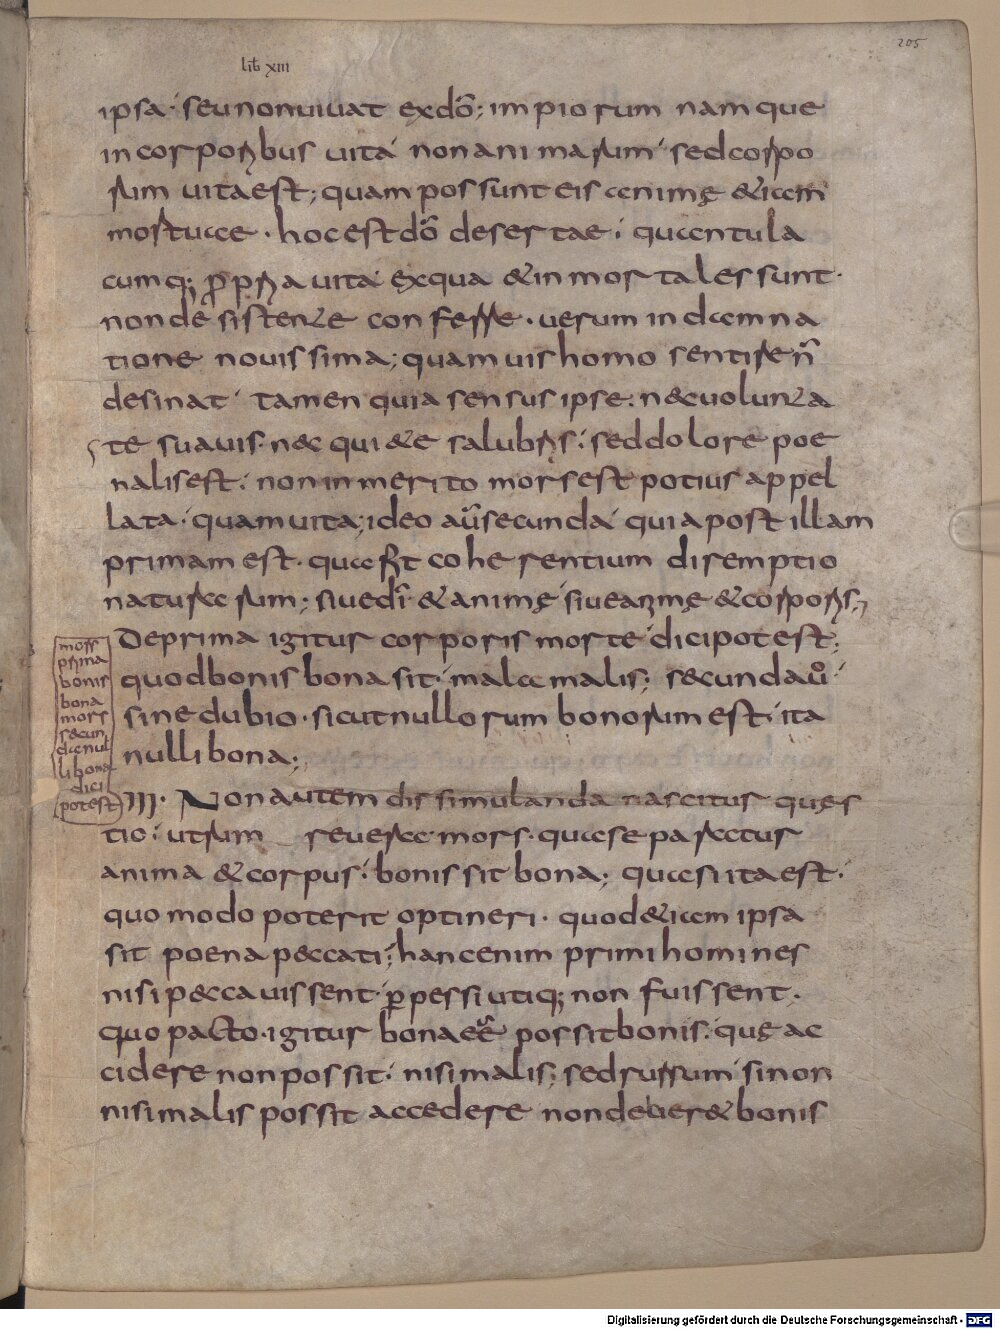 205
lib xiii
ipsa· seu non uiuat ex dõ; impiorum namque
in corporibus uita non animarum sed corpo
rum uita est; quam possunt eis animę &iam
mortuae· hoc est dõ desertae· quantula
cumq; propria uita ex qua & inmortales sunt·
non desistente conferre· uerum in damna
tione nouissima; quamuis homo sentire ñ
desinat· tamen quia sensus ipse· nec uolunta
te suauis· nec qui&e salubris· sed dolore poe
nalis est· non inmerito mors est potius appel
lata· quam uita; ideo aũ secunda quia post illam
primam est· qua fit coherentium diremptio
naturarum; siue dĩ & animę siue animę & corporis;
De prima igitur corporis morte dici potest;
quod bonis bona sit· mala malis; secunda uº·
sine dubio· sicut nullorum bonorum est· ita
nulli bona;
mors
prima
bonis
bona
mors
secun
da nul
li bona
dici
potest
III· Non autem dissimulanda nascitur quęs
tio· utrum reuera mors· qua separatur
anima & corpus· bonis sit bona; quia si ita est·
quomodo poterit optineri· quod &iam ipsa
sit poena peccati; hanc enim primi homines
nisi peccauissent· perpessi utiq; non fuissent·
quo pacto· igitur bona eẽ possit bonis· quę ac
cidere non possit· nisi malis; sed rursum si non
nisi malis possit accedere non deber& bonis
Digitalisierung gefördert durch die Deutsche Forschungsgemeinschaft - DFG